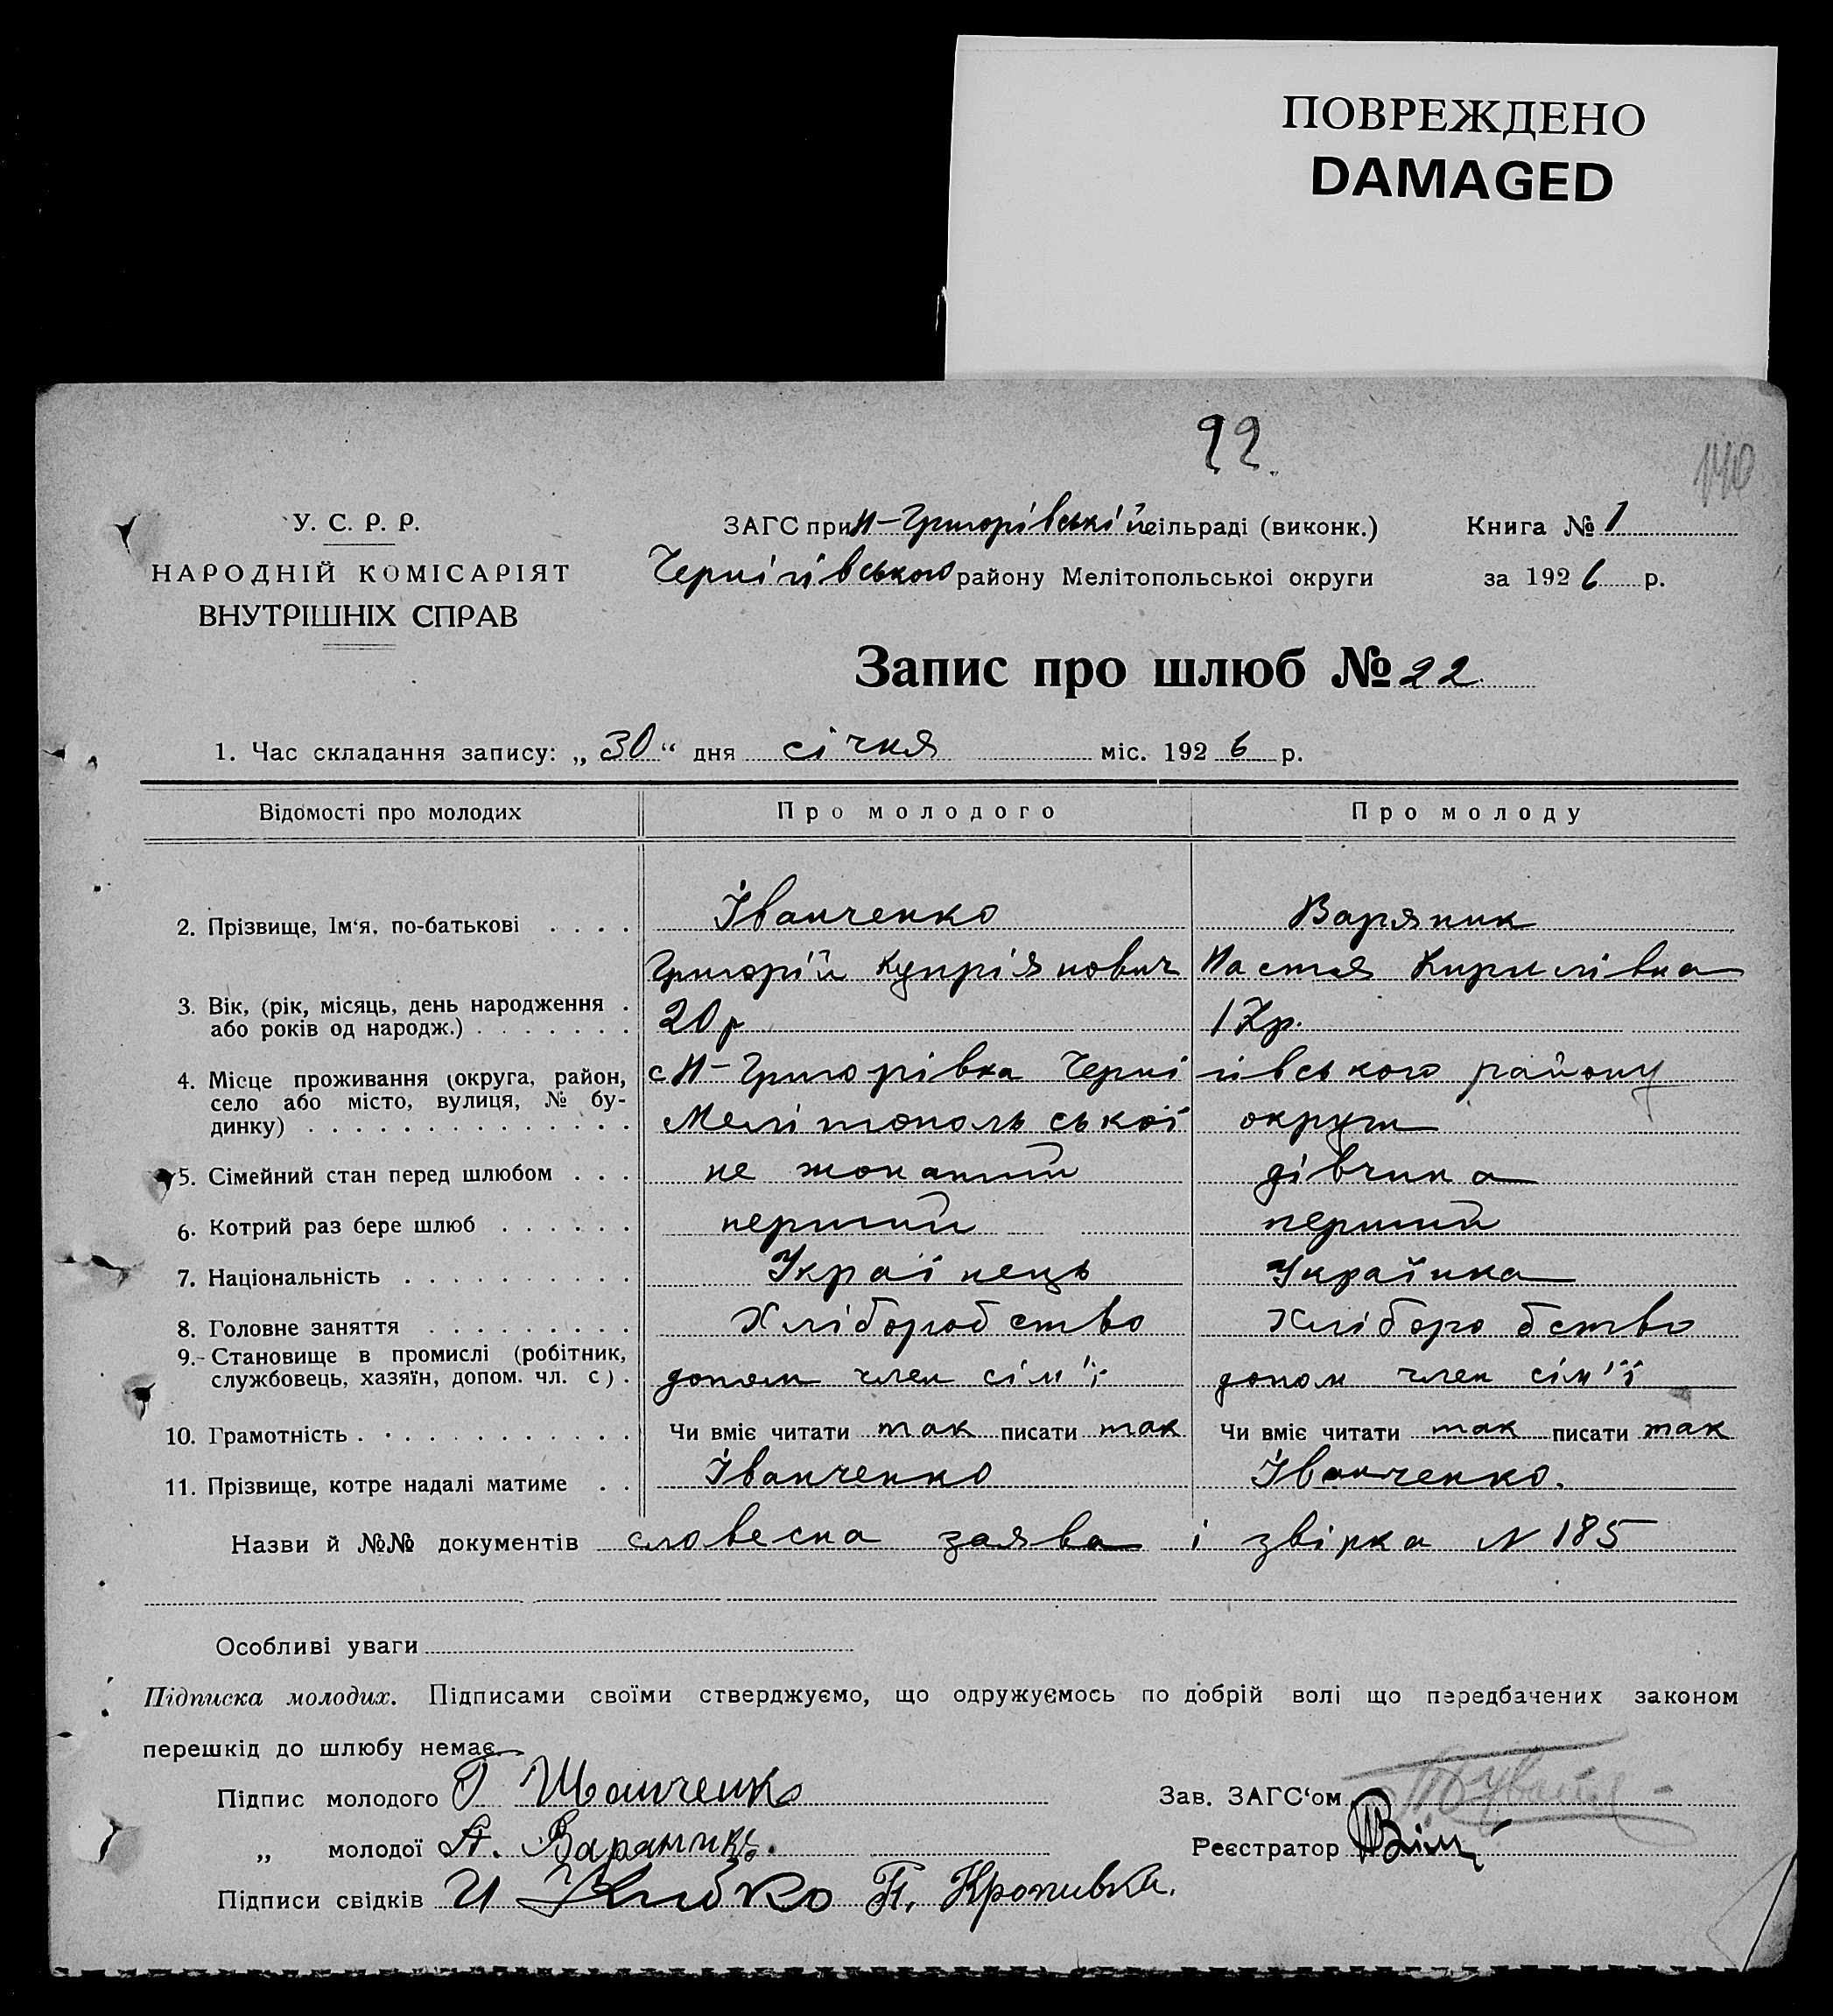 ПОВРЕЖДЕНО
DAMAGED
22.
140
У. С. Р. Р.
НАРОДНІЙ КОМІСАРІЯТ
ВНУТРІШНІХ СПРАВ
ЗАГС при Н-Григорівській сільраді (виконк.)
Чернігівського району Мелітопольської округи
Книга № 1
за 1926 р.
Запис про шлюб № 22.
1. Час складання запису: „30“ дня січня міс. 1926 р.
Відомості про молодих Про молодого Про молоду
2. Прізвище, Ім‘я, по-батькові . . . . Іванченко Варяник
Григорій Купріянович Настя Кирилівна
3. Вік, (рік, місяць, день народження .
або років од народж.) . . . . . . . 20 р 17 р.
4. Місце проживання (округа, район, с Н-Григорівка Черні гівського району
село або місто, вулиця, № бу-
динку) . . . . . . . . . . . . . . Мелітопольської округи
5. Сімейний стан перед шлюбом . . . не жонатий дівчина
6. Котрий раз бере шлюб . . . . . . перший перший
7. Національність . . . . . . . . . . Українець Українка
8. Головне заняття . . . . . . . . . Хліборобство Хліборобство
9.- Становище в промислі (робітник,
службовець, хазяїн, допом. чл. с) . допом член сім'ї допом член сім'ї
10. Грамотність . . . . . . . . . . . . Чи вміє читати так писати так Чи вміє читати так писати так
11. Прізвище, котре надалі матиме . . Іванченко Іванченко.
Назви й №№ документів словесна заява і звірка N 185
Особливі уваги
Підписка молодих. Підписами своїми стверджуємо, що одружуємось по добрій волі що передбачених законом
перешкід до шлюбу немає.
Підпис молодого Г Иванченко
Зав. ЗАГС‘ом
„ молодої А. Вараникъ.
Реєстратор
Підписи свідків И П. Кропивка.